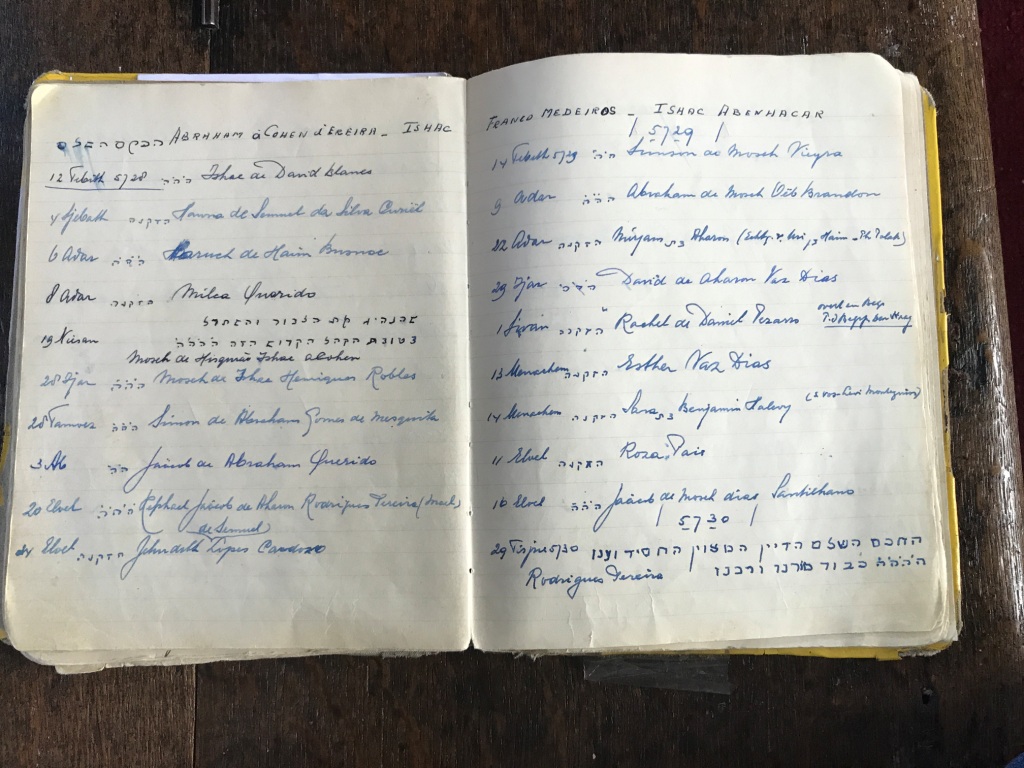 ABRAHAM aCOHEN d'EREIRA - ISHAC
12 Tebeth 5728 Ishac de David Blanes
4 Sjebath הזקנה Hanna de Semuel da Silva Curiël
6 Adar Baruch de Haim
8 Adar הזקנה Milca Querido
19 Nisan הקהל הקדוש הזה
Mosch de Hisquiau Ishac aCohen
28 Ijar Mosch de Ishac Henriques Robles
28 Tamuez Simon de Abraham Gomes de Mesquita
3 Ab Jaäcob de Abraham Querido
20 Eloel Rephael Jaäcob de Aharon Rodrigues Pereira (Israel)
de Semuel
24 Eloel הזקנה Jehudith Lopes Cardozo
FRANCO MEDEIROS - ISHAC ABENHACAR
| 5729 |
14 Tebeth 5729 Simson de Mosch Vieyra
9 Adar Abraham de Mosch Brandon
22 Adar הזקנה Mirjam בת Aharon
29 Ijar David de Aharon Vaz Dias
1 Sivan הזקנה Rachel de Daniel Pizarro
13 Menachem הזקנה Esther Vaz Dias
14 Menachem הזקנה Sara בת Benjamin Halevy
11 Eloel הזקנה Roza Pais
16 Eloel Jaäcob de Mosch dias Santilhano
| 5730 |
29 Tisjrie 5730 החכם השלם הדיין המצוין החסיד וענו
כבוד מורנו ורבנו
Rodrigues Pereira